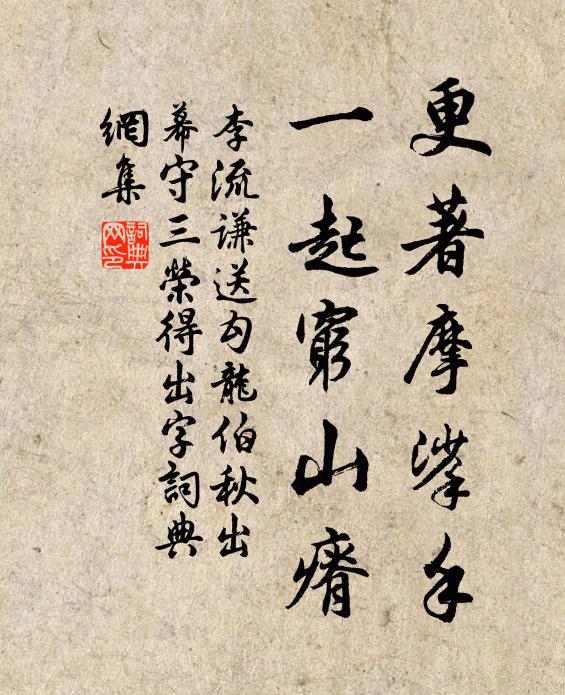 更著摩挲手
一起窮山瘠
李流謙送勾龍伯秋出
幕守三榮得出字詞典
網集
詞典
网印